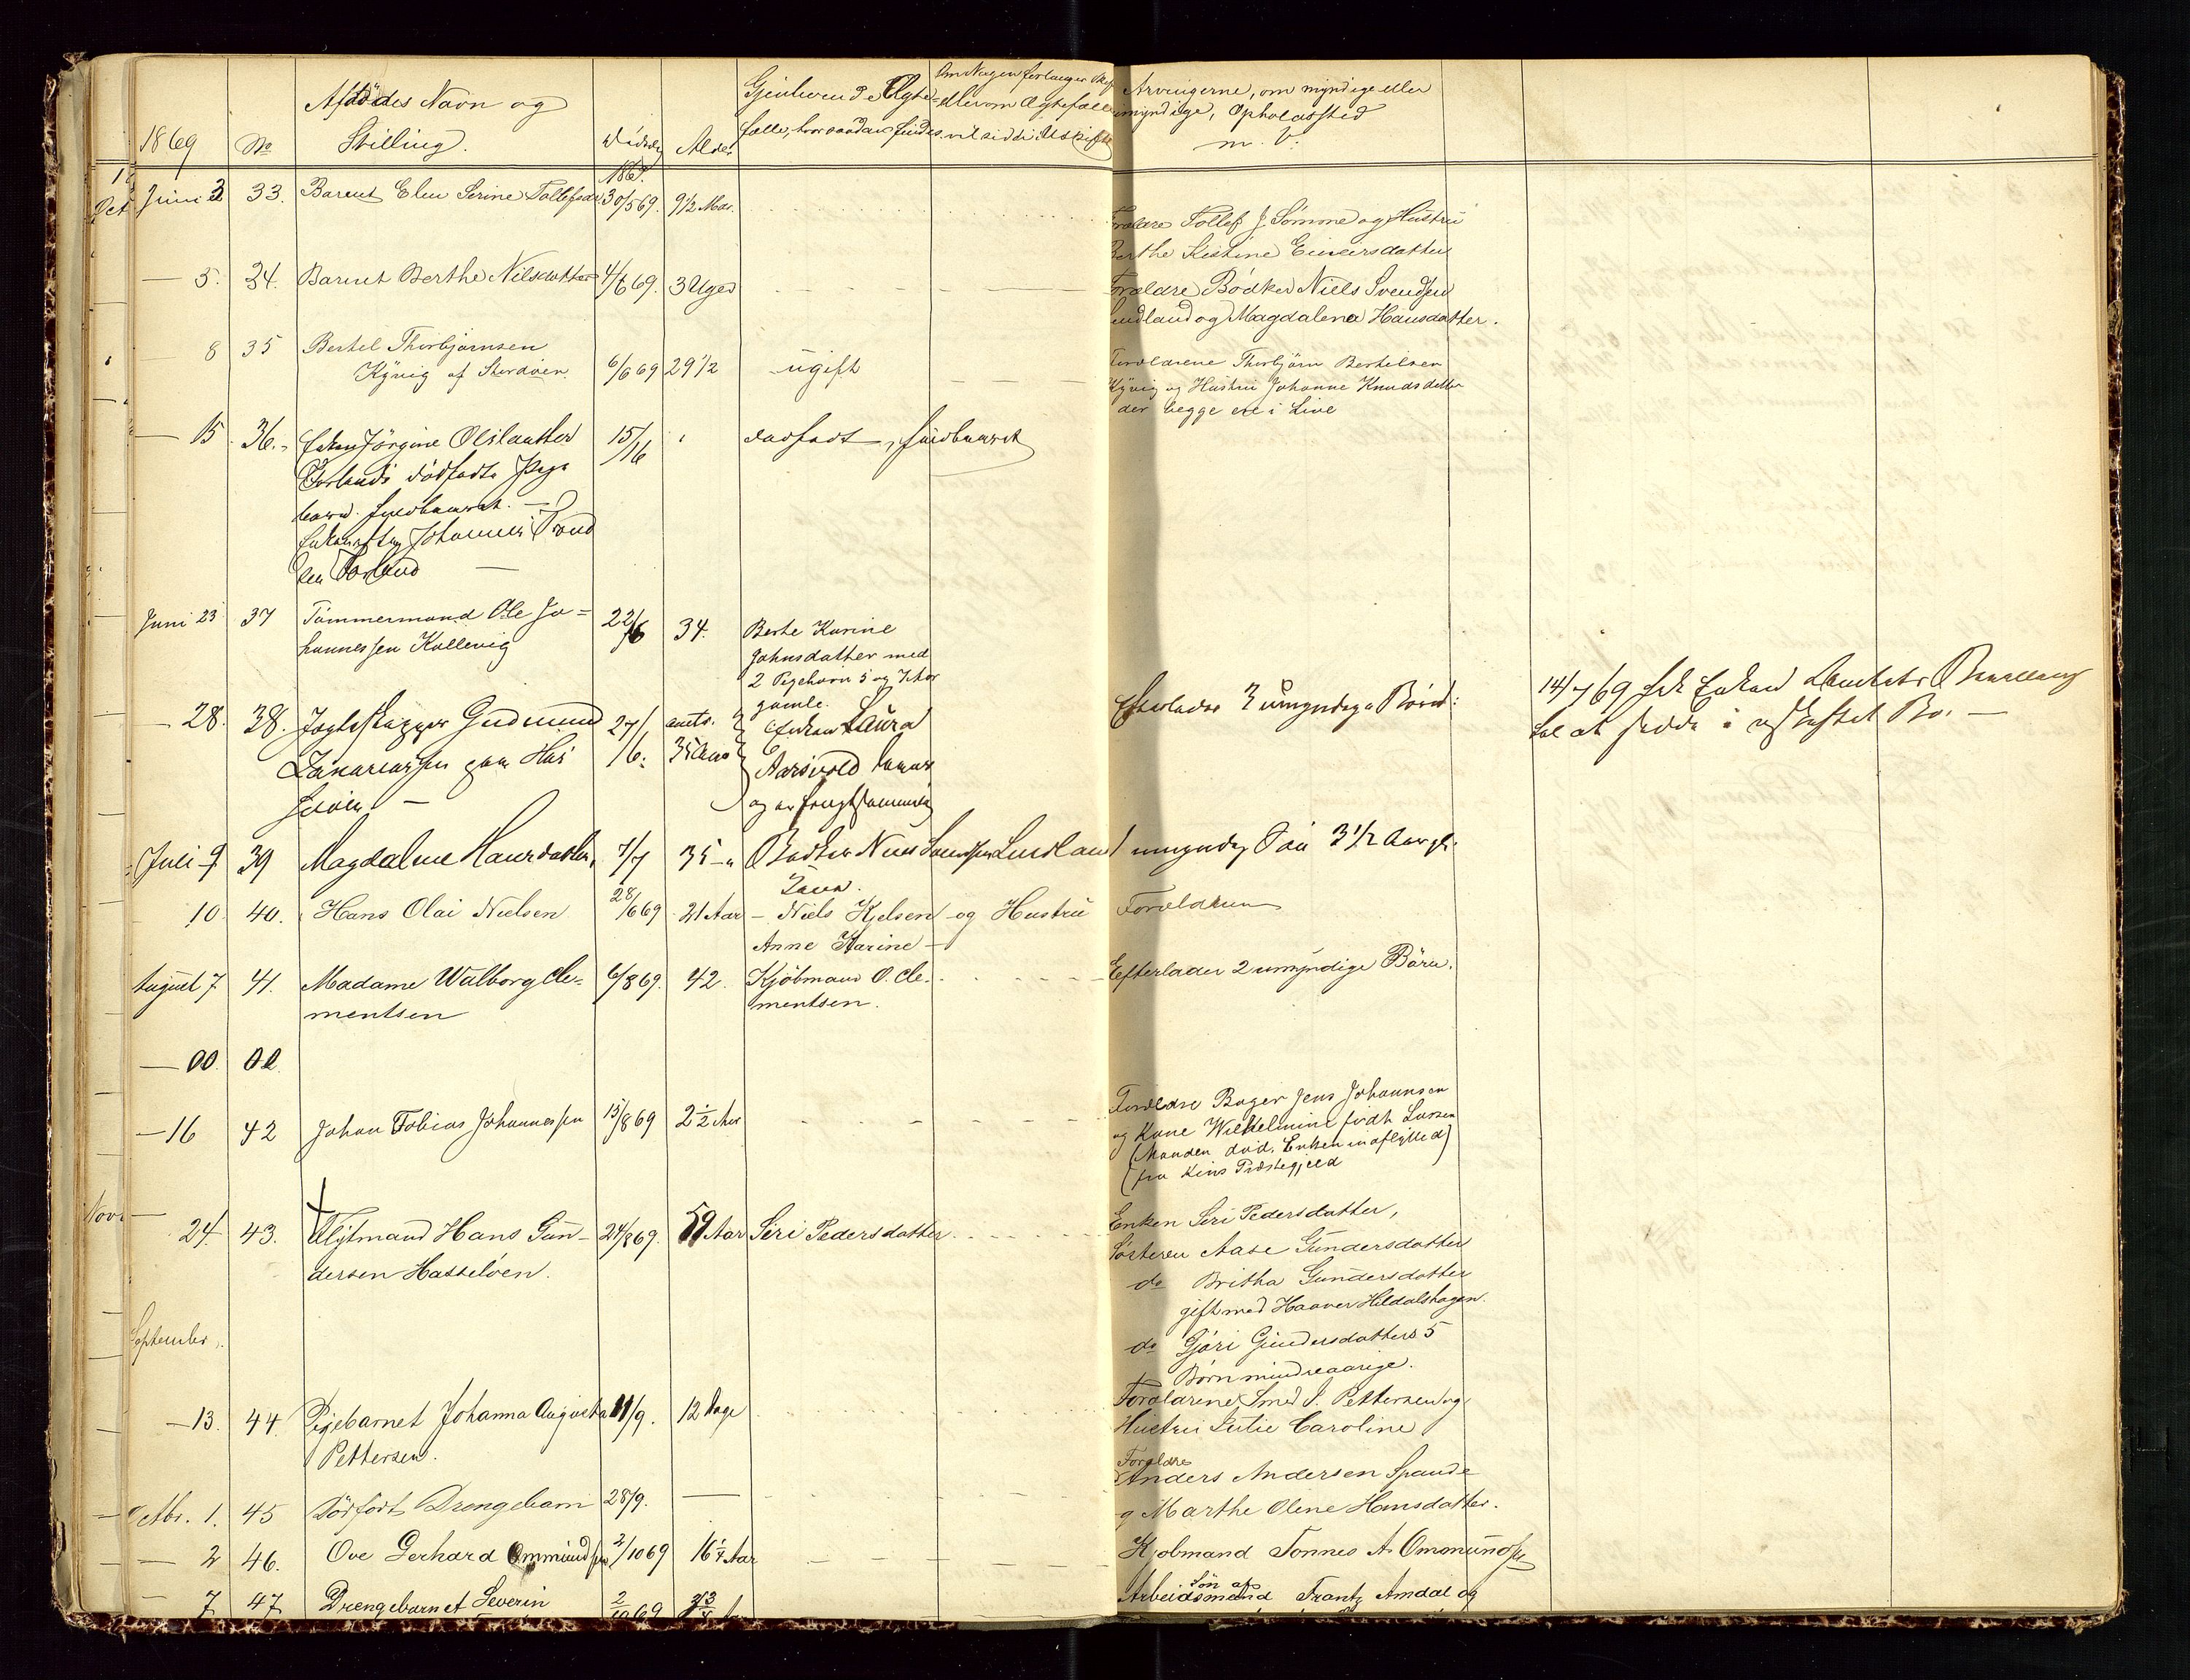 1869
No
Afdødes Navn og
Stilling.
Dødsdag
Alder
Gjenlevende Ægte-
fælle, hvor saadan findes.
Om Nogen forlanger Skifte
eller om Ægtefælle
vil sidde i Uskifte
Arvingerne, om myndige eller
umyndige, Opholdssted
m. V.
Juni 2 33. Barnet Elen Serine Tollefsdr 30/5 69. 9 1/2 Mdr.
Forældre Tollef J. Sømme og Hustru
Berthe Kistine Einersdatter
— 5. 34. Barnet Berthe Nilsdatter 4/6 69. 3 Uger
Forældre Bødker Niels Svendsen
Lindland og Magdalena Hansdatter.
8 35 Bertel Thorbjørnsen
Kyvig af Stordøen 6/6 69 29 1/2 ugift
Forældrene Thorbjørn Bertelsen
Kyvig og Hustru Johanne Knudsdatter
der begge ere i Live
— 15. 36. Enken Jørgine Olsdatter 15/6 dødfødt,
dødfødte Pige
barn.
Enke efter Johannes Trond
sen
Juni 23 37 Tømmermand Ole Jo=
hannessen Kallevig 22/6 34. Berte Karine
Johnsdatter med
2 Pigebørn 5 og 7 Aar
gamle.
— 28. 38. Jagteskipper Gudmund 27/6. 35 Aar Enken Laura
Zakariassen paa Has
seløen —
Aarsvold
og er frugtsommelig
Efterlader 3 umyndige Børn:
14/7 69 fik Enken Amtets Bevilling
til at sidde i uskiftet Bo. —
Juli 9 39 Magdalene Hansdatter, 7/7 35 - Bødker Niels Svendsen Lindland
1 umyndig Søn 3 1/2 Aar gl.
10 40. Hans Olai Nielsen 28/6 69 21 Aar – Niels Kjelsen og Hustru
Anne Karine —
Forældrene
August 7 41. Madame Walborg Cle=
mentsen 6/8 69. 42. Kjøbmand O. Cle-
mentsen.
Efterlader 2 umyndige Børn.
— 00 00
— 16 42 Johan Tobias Johannessen 15/8 69 2 1/2 Aar
Forældre Bager Jens Johannsen
og Kone Wilhelmine født Larsen
(Manden død. Enken inflytted)
(fra Kins Præstegjeld
24 43. Flytmand Hans Gun-
dersen Hasseløen. 24/8 69. 59 Aar Siri Pedersdatter
Enken Siri Pedersdatter,
Søsteren Aase Gundersdatter
do Britha Gundersdatter
gift med Haaver Hildalshagen.
do Gjøri Gundersdatters 5
Børn mindreaarige.
September
— 13. 44 Pigebarnet Johanna Augusta 11/9. 12 Dage
Pettersen.
Forældrene Smed S. Pettersen og
Hustru Julie Caroline
Octbr. 1. 45 Dødfødt Drengebarn 28/9. —
Forældre
Anders Andersen Spande
og Marthe Oline Hansdatter.
— 2 46. Ove Gerhard Ommundsen 2/10 69 16 1/4 Aar
Kjøbmand Tønnes A. Ommundsen
7 47 Drengebarnet Severin 2/10 69
Søn af
Arbeidsmand Frantz Amdal og